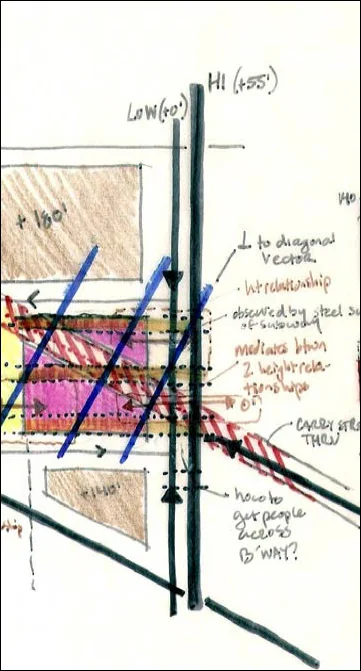 HI (+55')
LOW (+0')
+180'
⊥ to diagonal
vector
ht relationship
obscured by steel
of subway
mediates btwn
2 height rela-
tionships
CARRY
THRU
+140'
how to
get people
across
B'WAY?